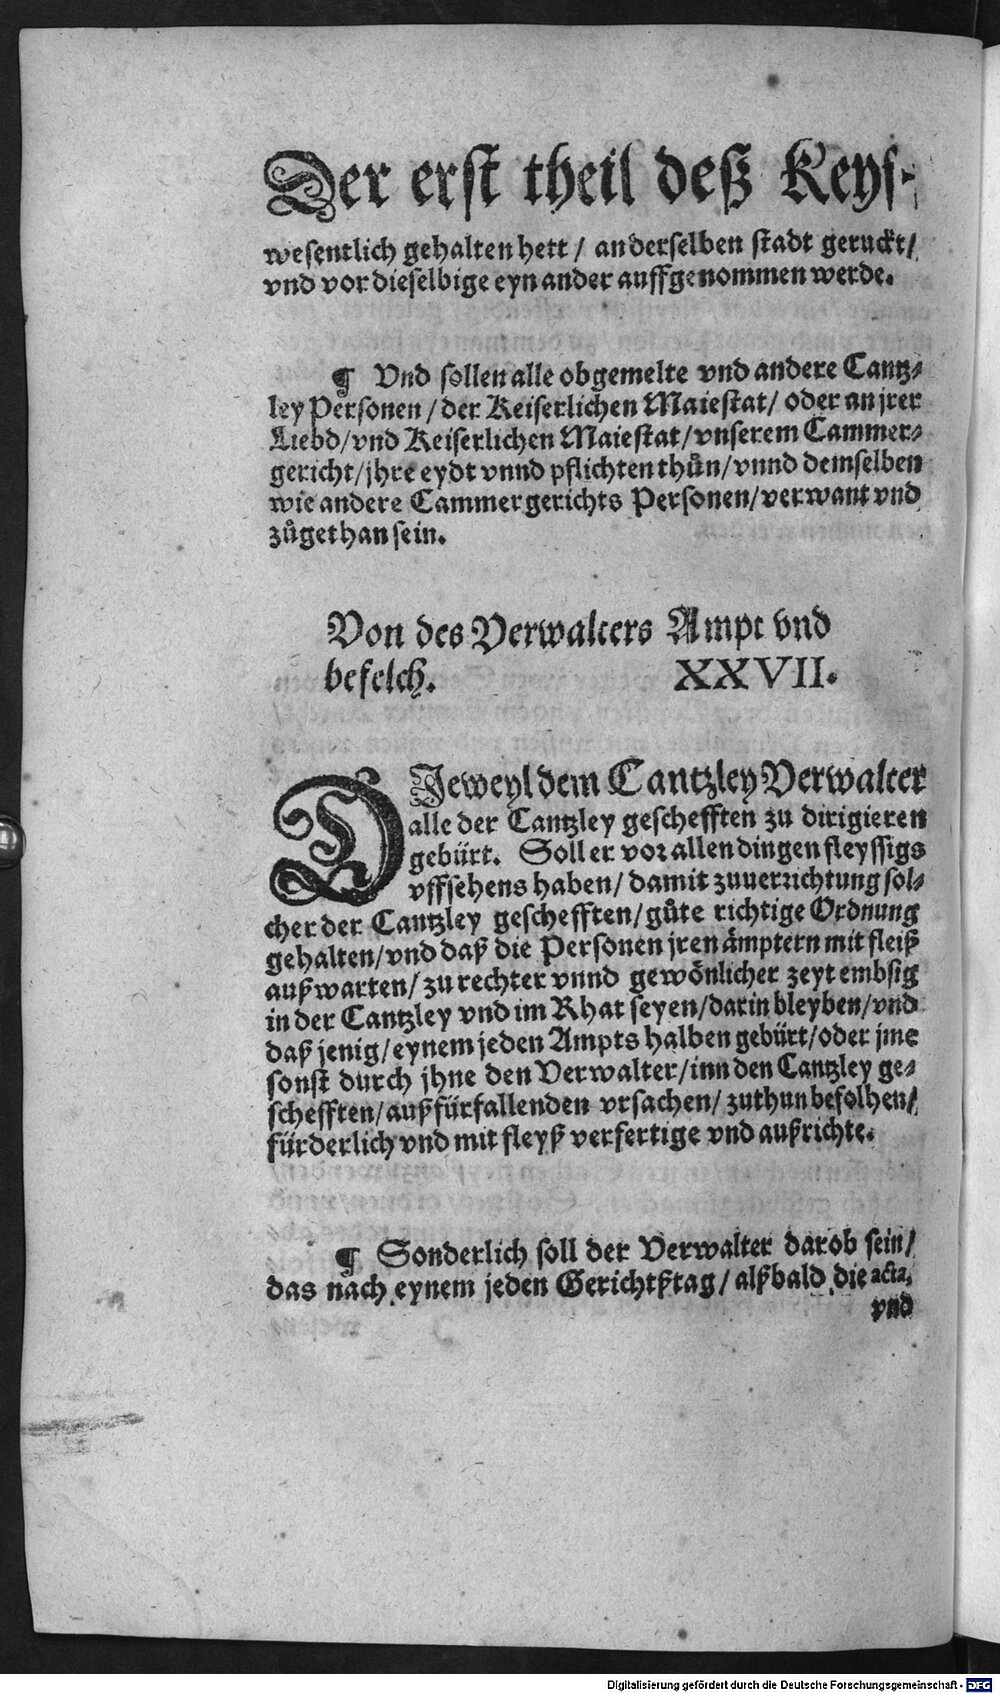 Der erst theil deß Keys-
wesentlich gehalten hett / an derselben stadt geruckt /
vnd vor dieselbige eyn ander auffgenommen werde.
¶ Vnd sollen alle obgemelte vnd andere Cantz-
ley Personen / der Keiserlichen Maiestat / oder an jrer
Liebd / vnd Keiserlichen Maiestat / vnserem Cammer-
gericht / jhre eydt vnnd pflichten thůn / vnnd demselben
wie andere Cammergerichts Personen / verwant vnd
zůgethan sein.
Von des Verwalters Ampt vnd
befelch. XXVII.
DJeweyl dem Cantzley Verwalter
alle der Cantzley geschefften zu dirigieren
gebürt. Soll er vor allen dingen fleyssigs
vffsehens haben / damit zuuerrichtung sol-
cher der Cantzley geschefften / gůte richtige Ordnung
gehalten / vnd daß die Personen jren ämptern mit fleiß
außwarten / zu rechter vnnd gewönlicher zeyt embsig
in der Cantzley vnd im Rhat seyen / darin bleyben / vnd
daß jenig / eynem jeden Ampts halben gebürt / oder jme
sonst durch jhne den Verwalter / inn den Cantzley ge-
schefften / auß fürfallenden vrsachen / zuthun befolhen /
fürderlich vnd mit fleyß verfertige vnd außrichte.
¶ Sonderlich soll der Verwalter darob sein /
das nach eynem jeden Gerichtßtag / alßbald die acta,
vnd
Digitalisierung gefördert durch die Deutsche Forschungsgemeinschaft - DFG